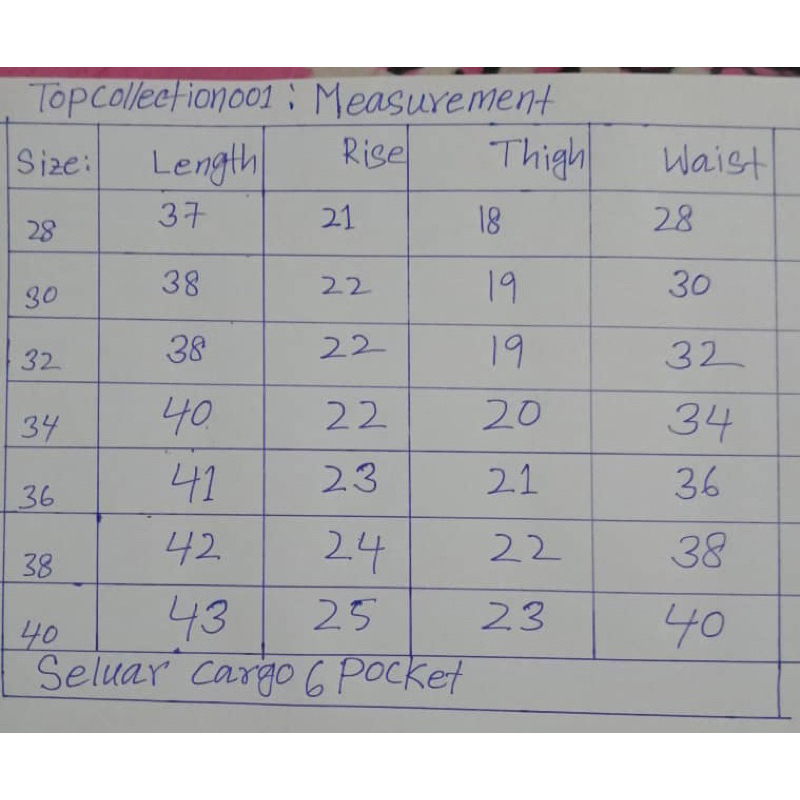 Topcollection001: Measurement
Size: Length Rise Thigh Waist
28 37 21 18 28
30 38 22 19 30
32 38 22 19 32
34 40 22 20 34
36 41 23 21 36
38 42 24 22 38
40 43 25 23 40
Seluar cargo 6 Pocket